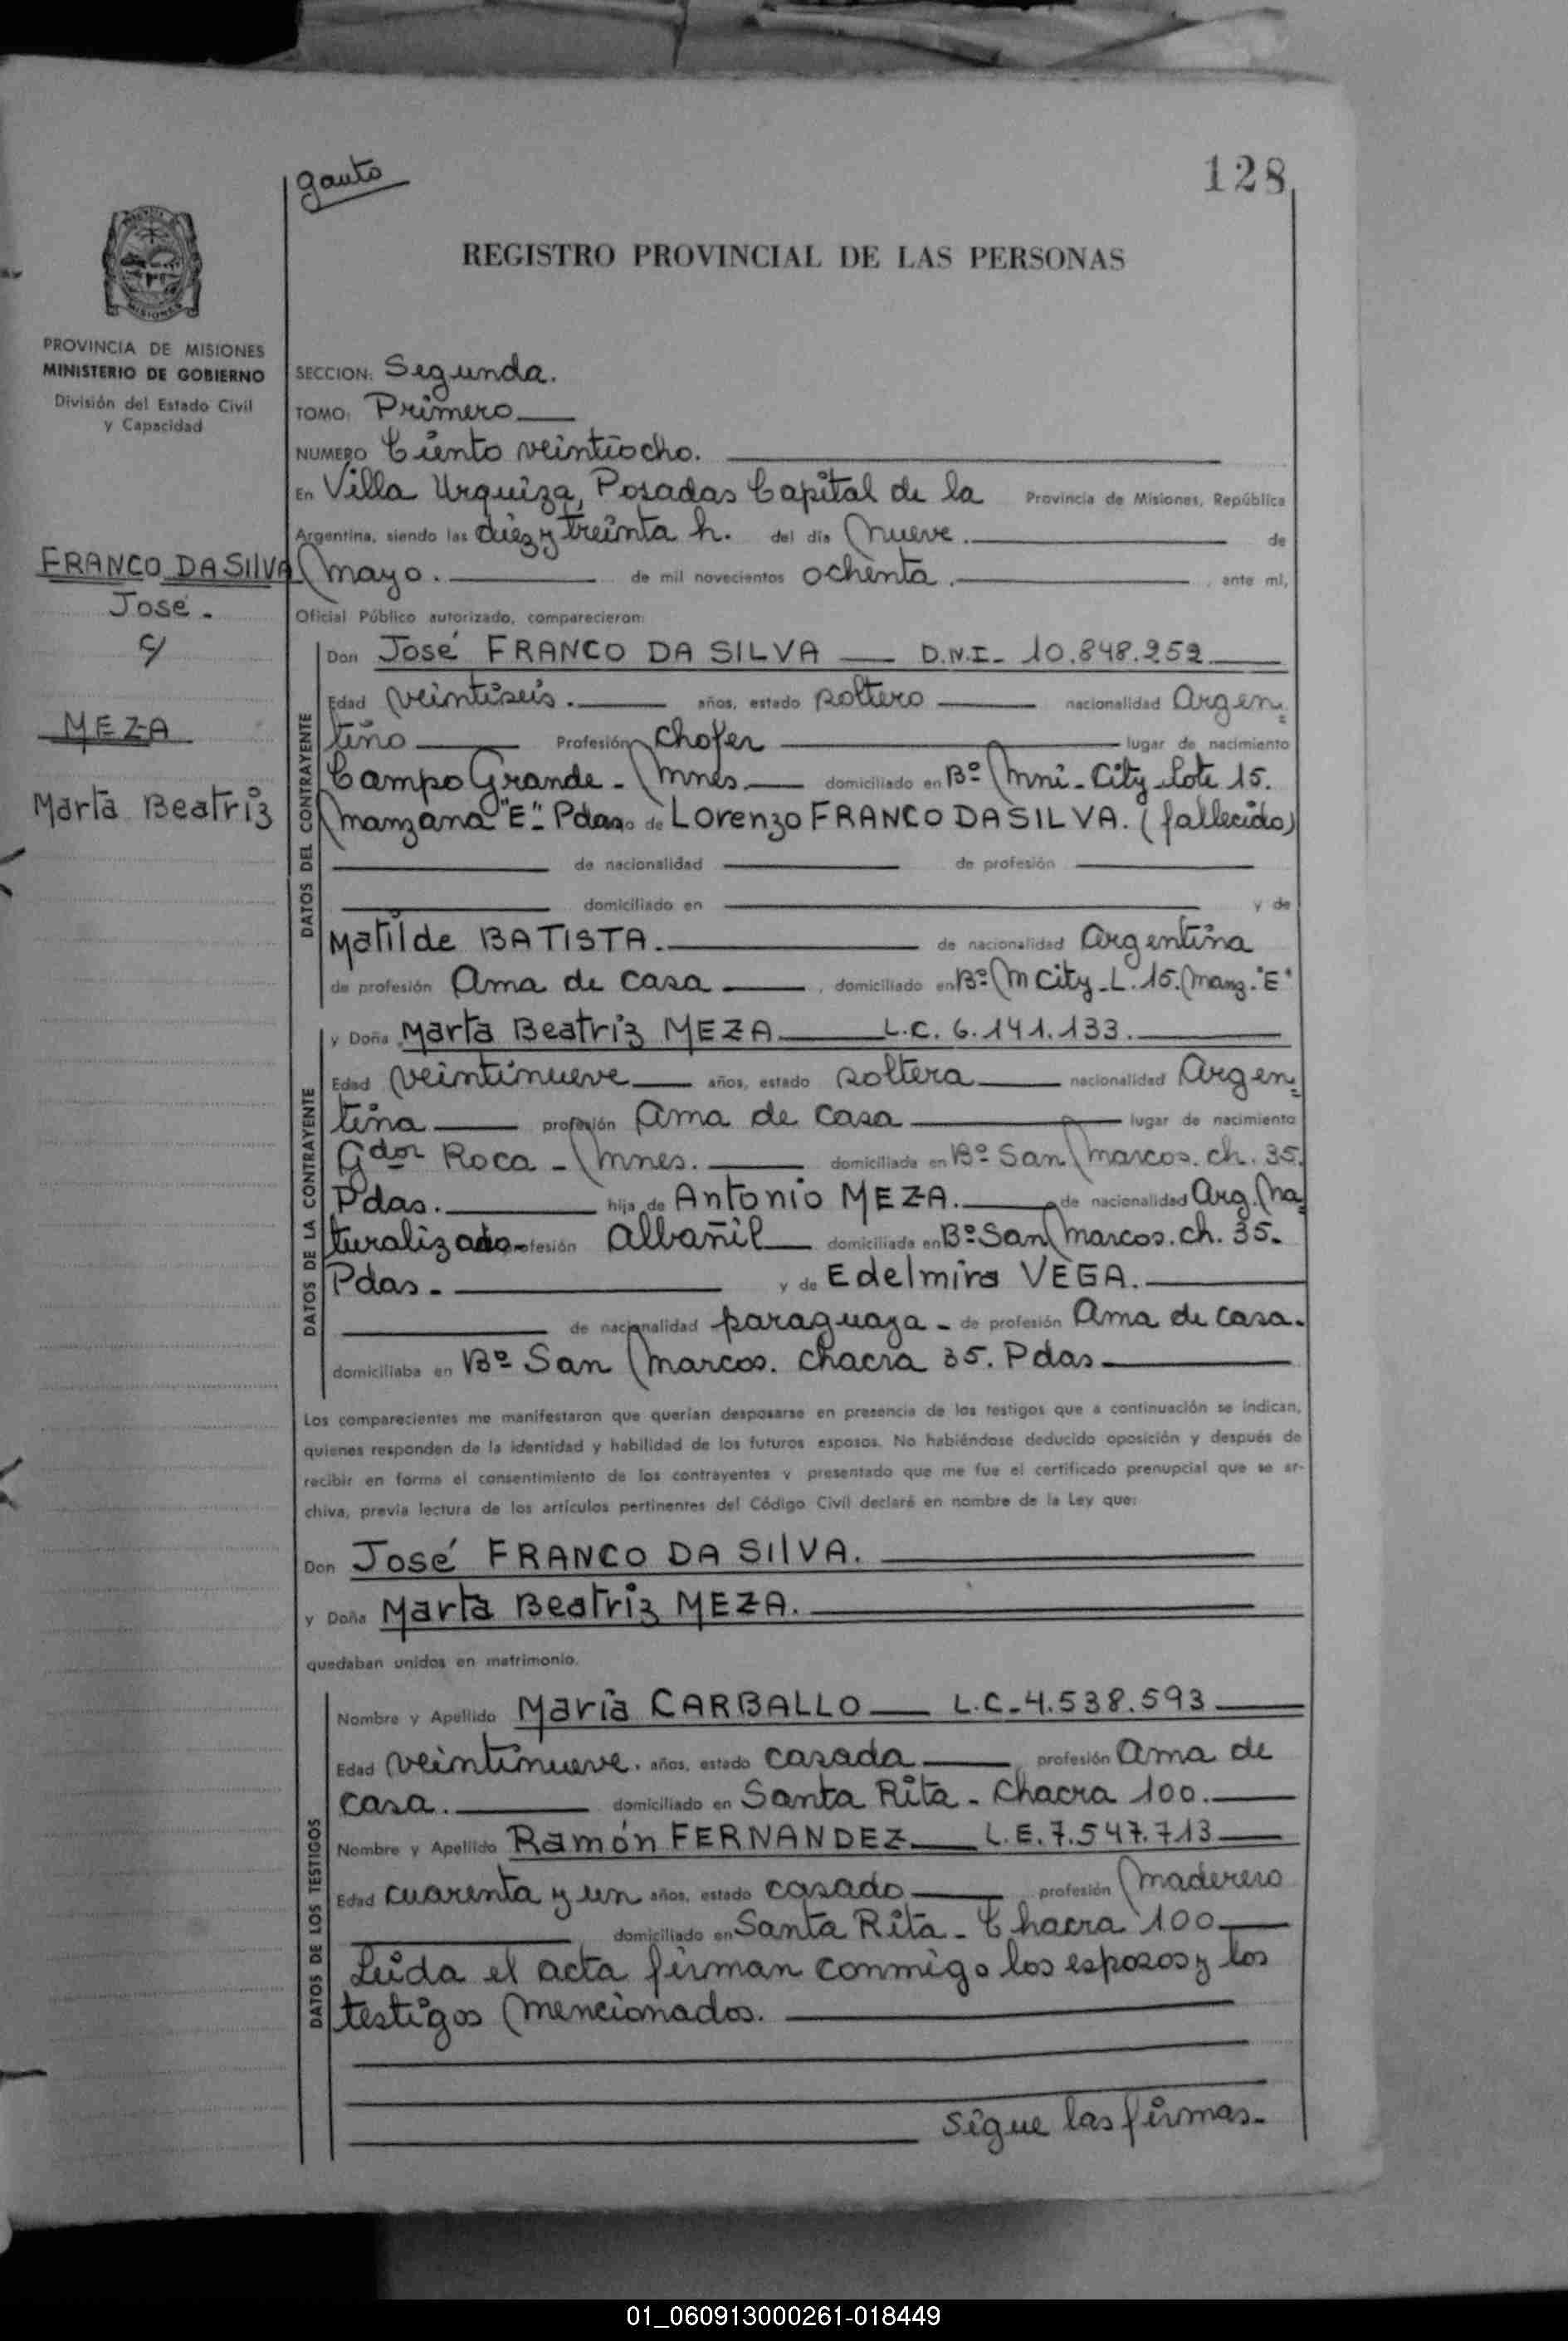 gauto
128
REGISTRO PROVINCIAL DE LAS PERSONAS
MISIONES
PROVINCIA DE MISIONES
MINISTERIO DE GOBIERNO
División del Estado Civil
y Capacidad
FRANCO DA SILVA
José.
c/
MEZA
Marta Beatriz
SECCION: Segunda.
TOMO: Primero
NUMERO Ciento veintiocho.
En Villa Urquiza, Posadas Capital de la Provincia de Misiones, República
Argentina, siendo las diez y treinta h. del día nueve. de
mayo. de mil novecientos ochenta. , ante mí,
Oficial Público autorizado, comparecieron:
DATOS DEL CONTRAYENTE
Don José FRANCO DA SILVA D.N.I- 10.848.252
Edad veintiseis. años, estado soltero nacionalidad Argen=
tino Profesión chofer lugar de nacimiento
Campo Grande - Mnes. domiciliado en Bº Mni-City-Lote 15.
manzana "E"- Pdas. de Lorenzo FRANCO DA SILVA. (fallecido)
de nacionalidad de profesión
domiciliado en y de
Matilde BATISTA. de nacionalidad Argentina
de profesión Ama de casa , domiciliado en Bº M City-L. 15. Manz. "E"
DATOS DE LA CONTRAYENTE
y Doña Marta Beatriz MEZA L.C. 6.141.133.
Edad veintinueve años, estado soltera nacionalidad Argen=
tina profesión Ama de casa lugar de nacimiento
Gdor Roca - Mnes. domiciliada en Bº San Marcos. ch. 35.
Pdas. hija de Antonio MEZA. de nacionalidad Arg. Na=
turalizado- profesión Albañil domiciliada en Bº San Marcos. ch. 35.
Pdas- y de Edelmira VEGA.
de nacionalidad paraguaya - de profesión Ama de casa.
domiciliaba en Bº San Marcos. chacra 35. Pdas
Los comparecientes me manifestaron que querían desposarse en presencia de los testigos que a continuación se indican,
quienes responden de la identidad y habilidad de los futuros esposos. No habiéndose deducido oposición y después de
recibir en forma el consentimiento de los contrayentes y presentado que me fue el certificado prenupcial que se ar-
chiva, previa lectura de los artículos pertinentes del Código Civil declaré en nombre de la Ley que:
Don José FRANCO DA SIlVA.
y Doña Marta Beatriz MEZA.
quedaban unidos en matrimonio.
DATOS DE LOS TESTIGOS
Nombre y Apellido María CARBALLO L.C-4.538.593
Edad veintinueve. años, estado casada , profesión Ama de
casa. domiciliado en Santa Rita - Chacra 100.
Nombre y Apellido Ramón FERNANDEZ L.E. 7.547.713
Edad cuarenta y un años, estado casado , profesión Maderero
domiciliado en Santa Rita - Chacra 100
Leida el acta firman conmigo los esposos y los
testigos mencionados.
Sigue las firmas-
01_060913000261-018449